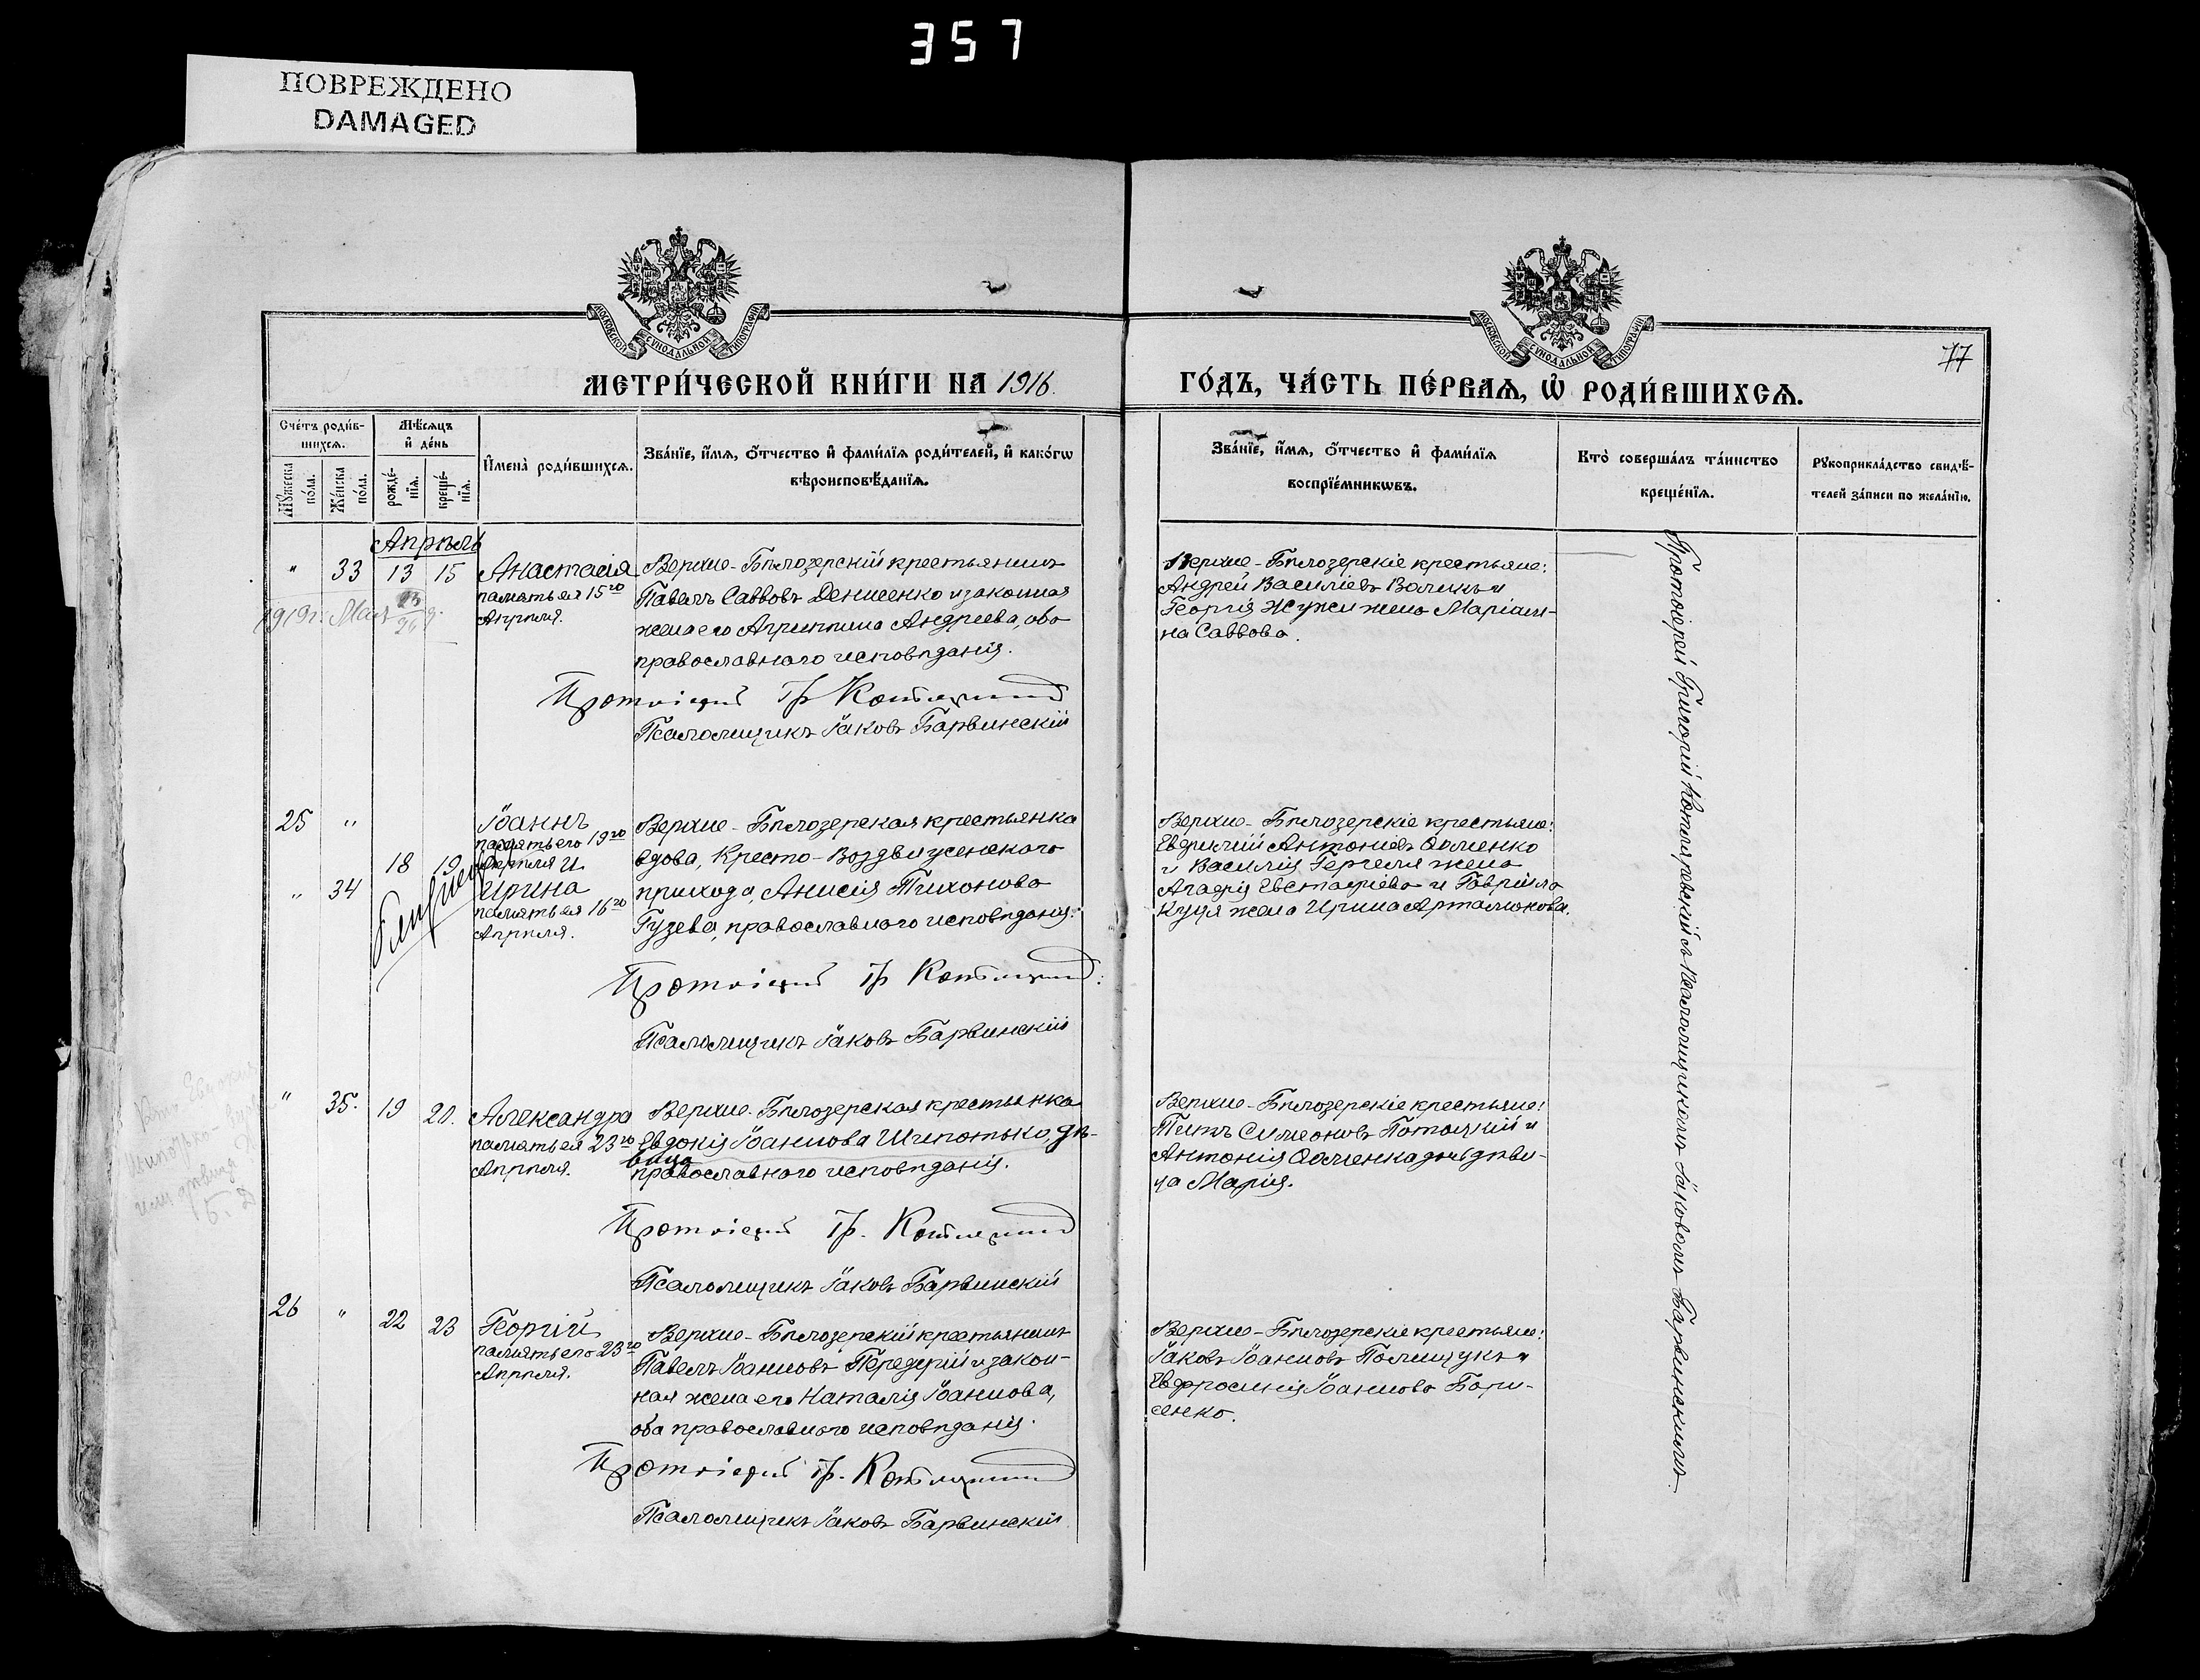 357
ПОВРЕЖДЕНО
DAMAGED
МОСКОВСКОЙ СѴНОДАЛЬНОЙ ТИПОГРАФІИ
МОСКОВСКОЙ СѴНОДАЛЬНОЙ ТИПОГРАФІИ
77
МЕТРИ́ЧЕСКОЙ КНИ́ГИ НА 1916.
ГО́ДЪ, ЧА́СТЬ ПЕ́РВАѦ, Ѡ҆ РОДИ́ВШИХСѦ.
Сче́тъ роди́в-
шихсѧ.
Мѣ́сѧцъ
и҆ де́нь
Мꙋ́жеска
по́ла.
Же́нска
по́ла.
рожде́-
нїѧ.
креще́-
нїѧ.
И҆мена̀ роди́вшихсѧ.
Зва́нїе, и҆́мѧ, ѻ҆́тчество и҆ фами́лїѧ роди́телей, и҆ како́гѡ
вѣроисповѣ́данїѧ.
Зва́нїе, и҆́мѧ, ѻ҆́тчество и҆ фами́лїѧ
воспрїе́мникѡвъ.
Кто̀ соверша́лъ та́инство
креще́нїѧ.
Рꙋкоприкла́дство свидѣ́-
телей за́писи по жела́нїю.
Апрѣль
" 33 13 15
Анастасія
память ея 15го
Апрѣля.
1919г. Мая
Верхне-Бѣлозерскій крестьянинъ
Павелъ Саввовъ Денисенко и законная
жена его Агриппина Андреева, оба
православнаго исповѣданія.
Протоіерей Гр Котляревскій
Псаломщикъ Іаковъ Барвинскій
Верхне-Бѣлозерскіе крестьяне:
Андрей Василіевъ Воликъ и
Георгія Жужи жена Маріам-
на Саввова.
25 "
18 19
" 34
Близнецы
Іоаннъ
память его 19го
Апрѣля и
Ирина
память ея 16го
Апрѣля.
Верхне-Бѣлозерская крестьянка
вдова, Кресто-Воздвиженскаго
прихода, Анисія Тихонова
Гузева, православнаго исповѣданія.
Протоіерей Гр Котляревскій
Псаломщикъ Іаковъ Барвинскій
Верхне-Бѣлозерскіе крестьяне:
Евфимій Антоніевъ
и Василія жена
Агафія Евстафіева и Гавріила
Куця жена Ирина Артамонова.
" 35. 19 20.
Александра
память ея 23го
Апрѣля.
Верхне-Бѣлозерская крестьянка
Евдокія Іоаннова Шипотько, дѣ-
вица
православнаго исповѣданія.
Протоіерей Гр. Котляревскій
Псаломщикъ Іаковъ Барвинскій
Верхне-Бѣлозерскіе крестьяне:
Титъ Симеоновъ Потоцкій и
Антонія дочь дѣви-
ца Марія.
26 " 22 23
Георгій
память его 23го
Апрѣля.
Верхне-Бѣлозерскій крестьянинъ
Павелъ Іоанновъ Передерій и закон-
ная жена его Наталія Іоаннова,
оба православнаго исповѣданія.
Протоіерей Гр. Котляревскій
Псаломщикъ Іаковъ Барвинскій
Верхне-Бѣлозерскіе крестьяне:
Іаковъ Іоанновъ Полищукъ и
Евфросинія Іоаннова Бори-
сенко.
Протоіерей Григорій Котляревскій съ псаломщикомъ Іаковомъ Барвинскимъ